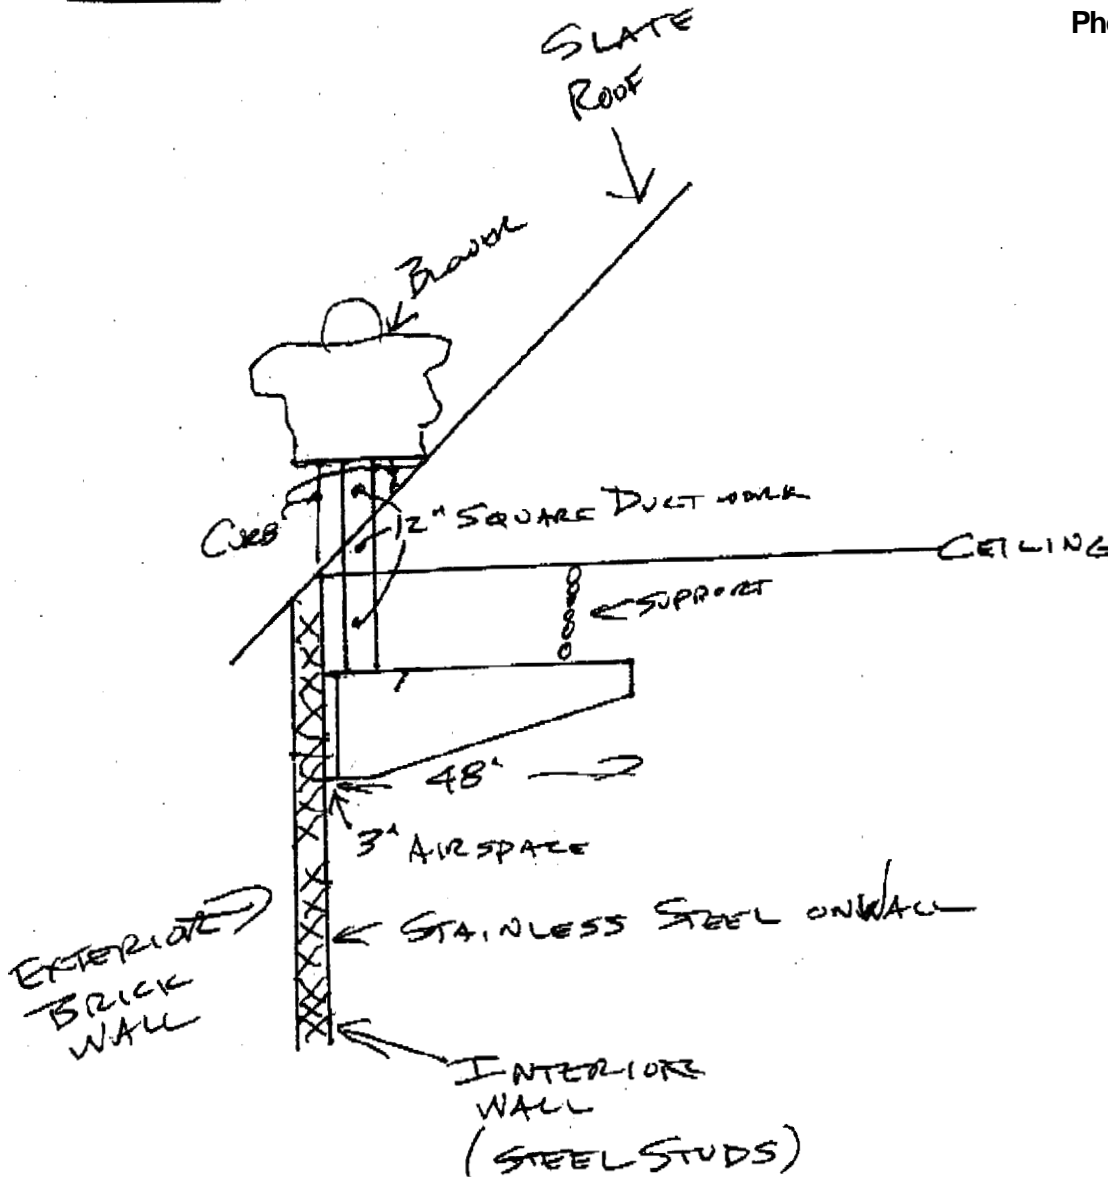 Pho
SLATE
ROOF
BLOWER
CURB
12" SQUARE DUCT WORK
CEILING
SUPPORT
48"
3" AIRSPACE
STAINLESS STEEL ON WALL
EXTERIOR
BRICK
WALL
INTERIOR
WALL
(STEEL STUDS)